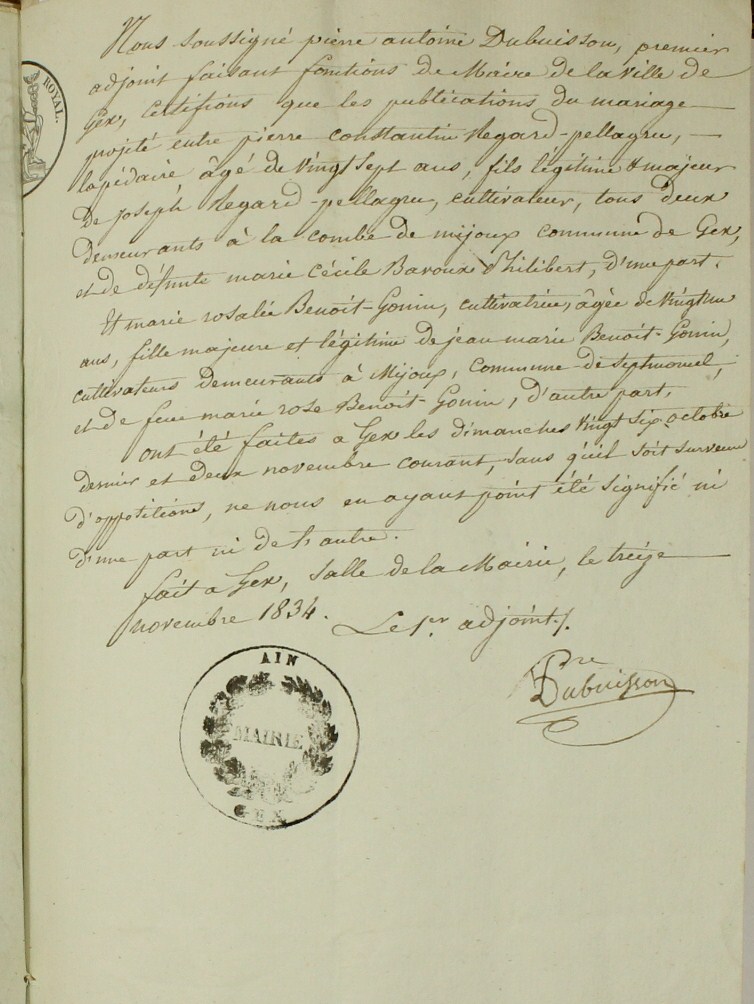 ROYAL.
Nous soussigné pierre antoine Dubuisson, premier
adjoint faisant fonctions de Maire de la ville de
Gex, certifions que les publications du mariage
projeté entre pierre constantin Regard-pellagru,
lapédaire âgé de vingt sept ans, fils légitime & majeur
de joseph Regard-pellagru, cultivateur, tous deux
demeurants à la combe de mijoux commune de Gex,
et de défunte marie cécile Baroux d'hilibert, d'une part.
Et marie rosalie Benoit-Gonin, cultivatrice, âgée de vingt un
ans, fille majeure et légitime de jean marie Benoit-Gonin,
cultivateurs demeurants à Mijoux, commune de Septmoncel,
et de feue marie rose Benoit-Gonin, d'autre part.
ont été faites a Gex les dimanches vingt six octobre
dernier et deux novembre courant, sans qu'il soit survenu
d'oppositions, ne nous en ayant point été signifié ni
d'une part ni de l'autre.
fait a Gex, Salle de la Mairie, le treize
novembre 1834. Le 1r. adjoint.
Pre
Dubuisson
AIN
MAIRIE
GEX